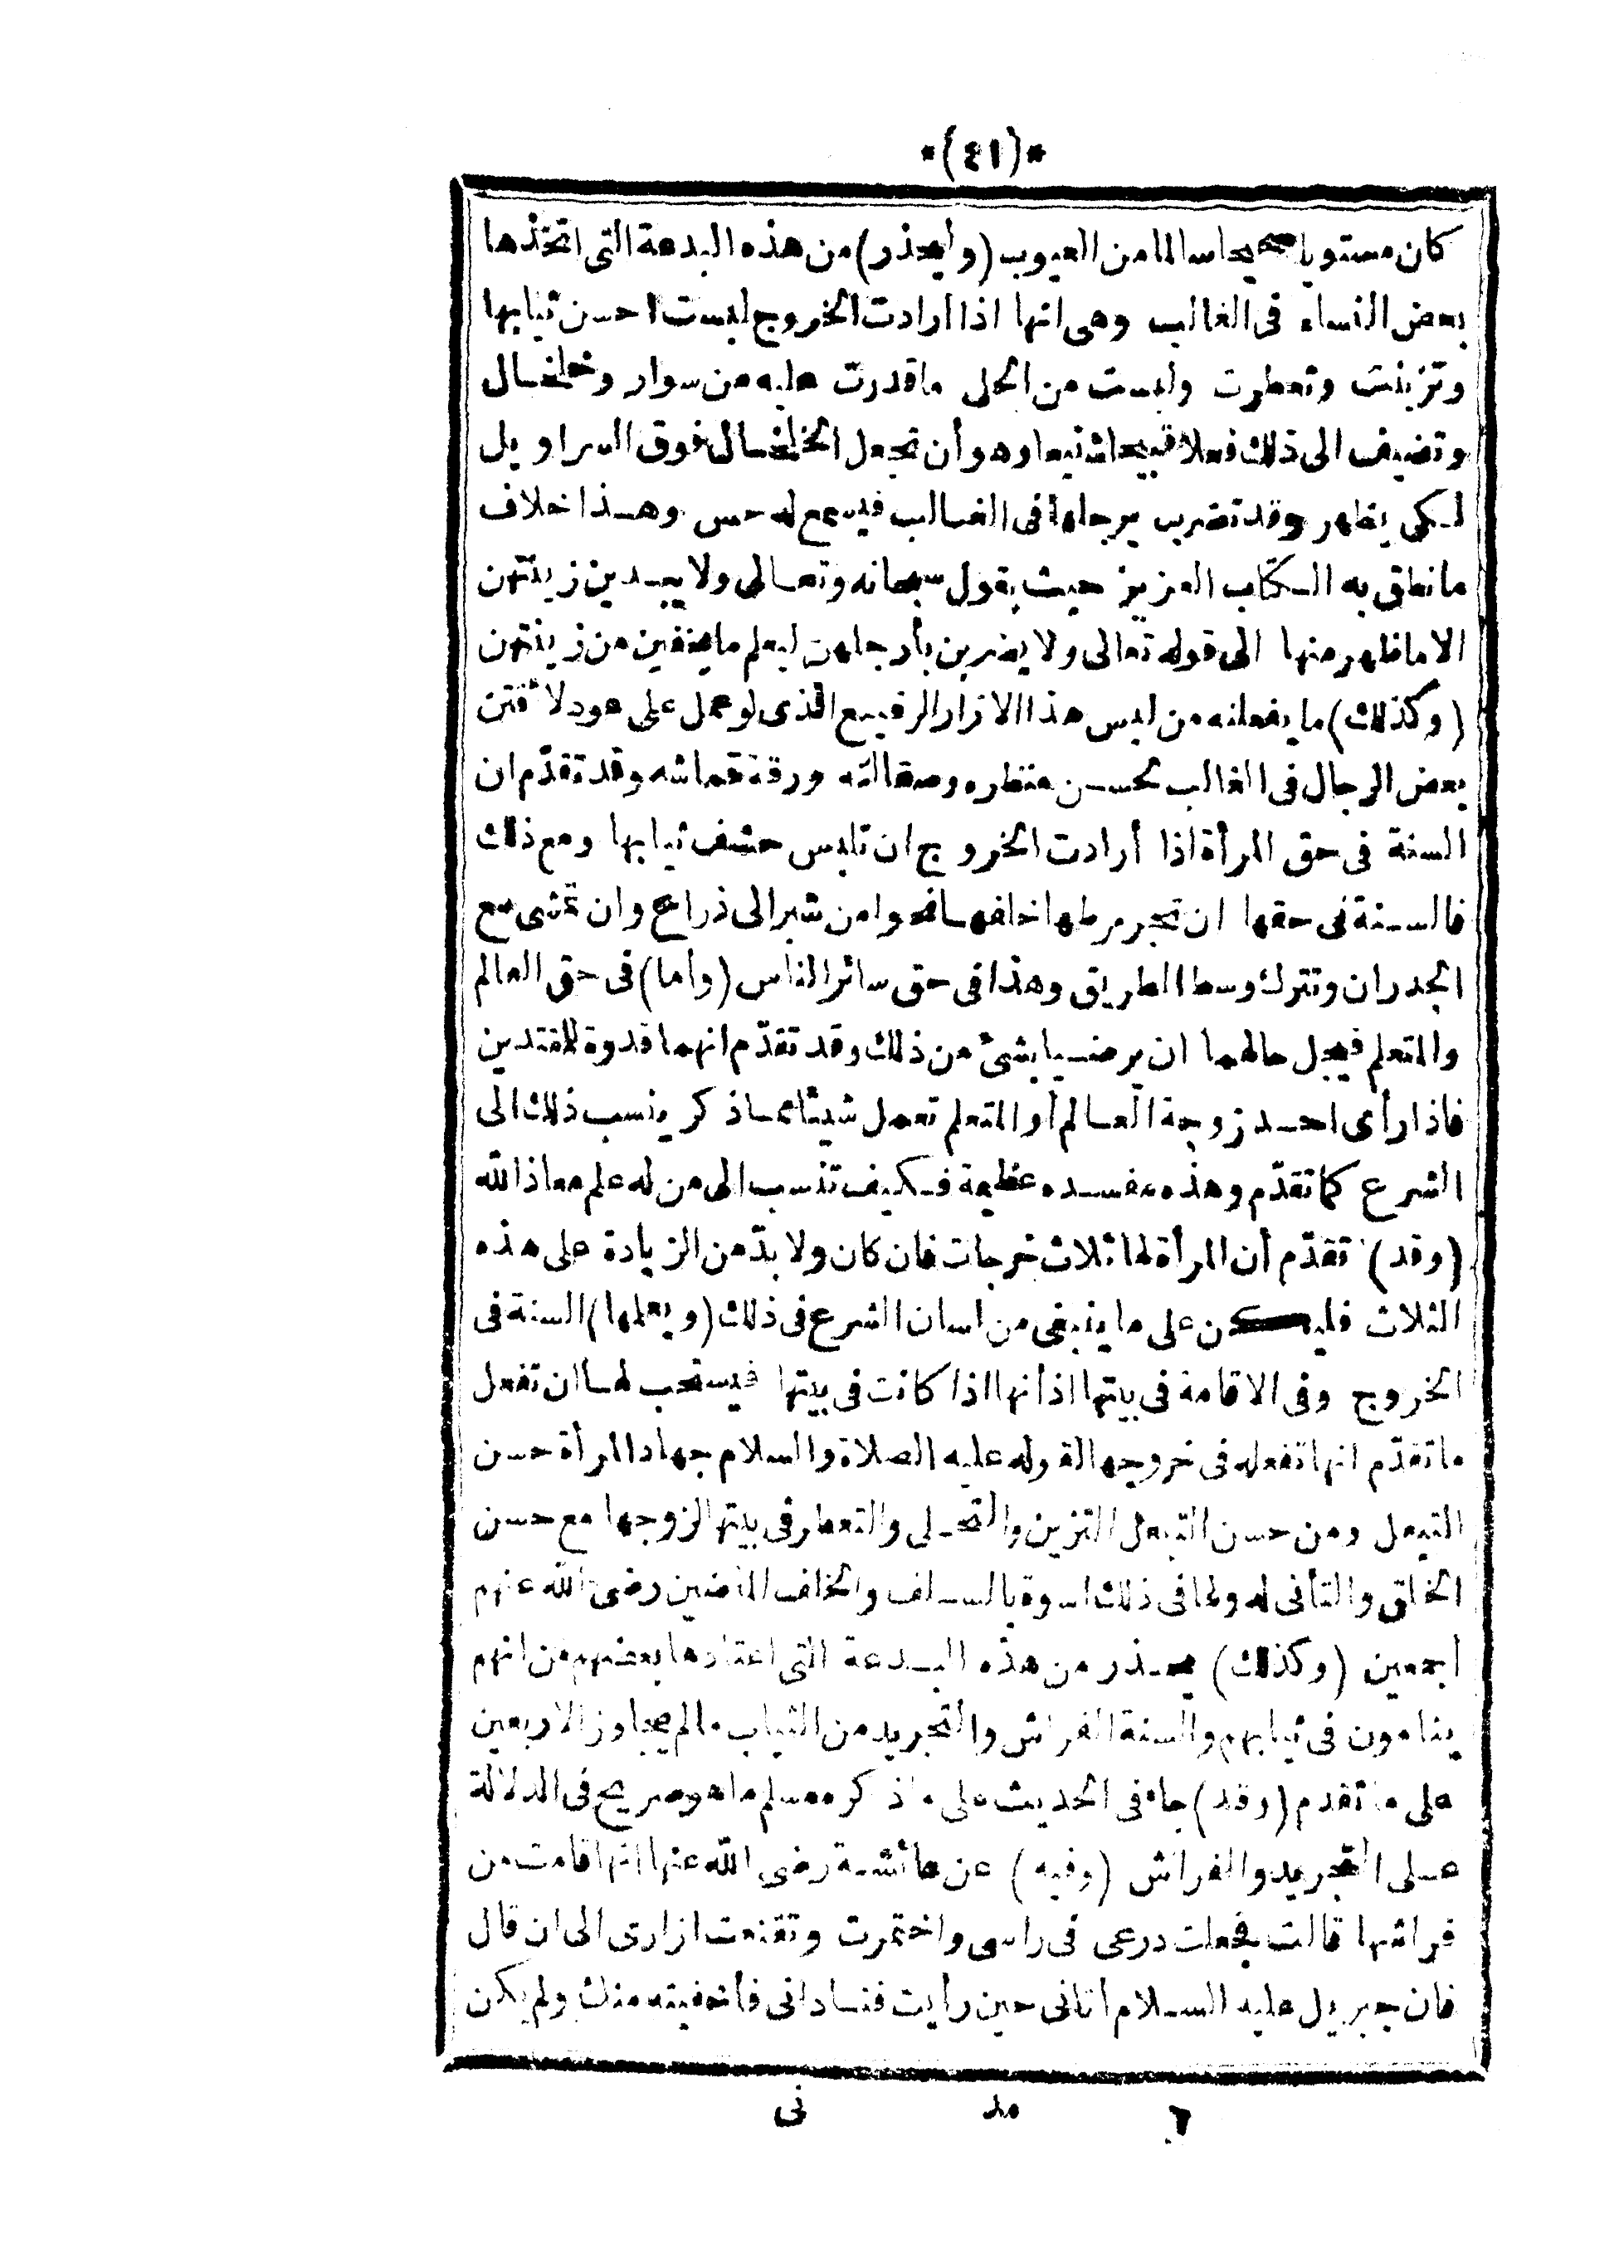 *(٤١)*
كان مستويا صحيحا سالما من العيوب (وليحذر) من هذه البدعة التى اتخذها
بعض النساء فى الغالب وهى انها اذا ارادت الخروج لبست احسن ثيابها
وتزينت وتعطرت ولبست من الحلى ماقدرت عليه من سوار وخلخال
وتضيف الى ذلك فعلا قبيحا شنيعا وهو أن تجعل الخلخال فوق السراويل
لكى يظهر وقد تضرب برجلها فى الغالب فيسمع له حس وهذا خلاف
مانطق به الكتاب العزيز حيث يقول سبحانه وتعالى ولا يبدين زينتهن
الا ماظهر منها الى قوله تعالى ولا يضربن بأرجلهن ليعلم ما يخفين من زينتهن
(وكذلك) ما يفعلنه من لبس هذا الازار الرفيع الذى لو عمل على عود لأفتن
بعض الرجال فى الغالب لحسن منظره وصقالته ورقة قماشه وقد تقدّم ان
السنة فى حق المرأة اذا أرادت الخروج ان تلبس حشف ثيابها ومع ذلك
فالسنة فى حقها ان تجر مرطها خلفها نحوا من شبر الى ذراع وان تمشى مع
الجدران وتترك وسط الطريق وهذا فى حق سائر الناس (وأما) فى حق العالم
والمتعلم فيجل حالهما ان يرضيا بشئ من ذلك وقد تقدّم انهما قدوة للمقتدين
فاذا رأى احد زوجة العالم أو المتعلم تعمل شيئا مما ذكر ينسب ذلك الى
الشرع كما تقدّم وهذه مفسده عظيمة فكيف تنسب الى من له علم معاذ الله
(وقد) تقدّم أن المرأة لها ثلاث خرجات فان كان ولا بدّ من الزيادة على هذه
الثلاث فليكن على ما ينبغى من لسان الشرع فى ذلك (ويعلمها) السنة فى
الخروج وفى الاقامة فى بيتها اذ أنها اذا كانت فى بيتها فيستحب لها ان تفعل
ما تقدّم انها تفعله فى خروجها لقوله عليه الصلاة والسلام جهاد المرأة حسن
التبعل ومن حسن التبعل التزين والتحلى والتعطر فى بيتها لزوجها مع حسن
الخلق والتأنى له ولها فى ذلك اسوة بالسلف والخلف الماضين رضى الله عنهم
أجمعين (وكذلك) يحذر من هذه البدعة التى اعتادها بعضهم من انهم
ينامون فى ثيابهم والسنة الفراش والتجريد من الثياب مالم يجاوز الاربعين
على ما تقدم (وقد) جاء فى الحديث على ما ذكره مسلم ما هو صريح فى الدلالة
على التجريد والفراش (وفيه) عن عائشة رضى الله عنها انها قامت من
فراشها قالت فجعلت درعى فى راسى واختمرت وتقنعت ازارى الى ان قال
فان جبريل عليه السلام أتانى حين رأيت فنادانى فأخفيته منك ولم يكن
٦ مد نى